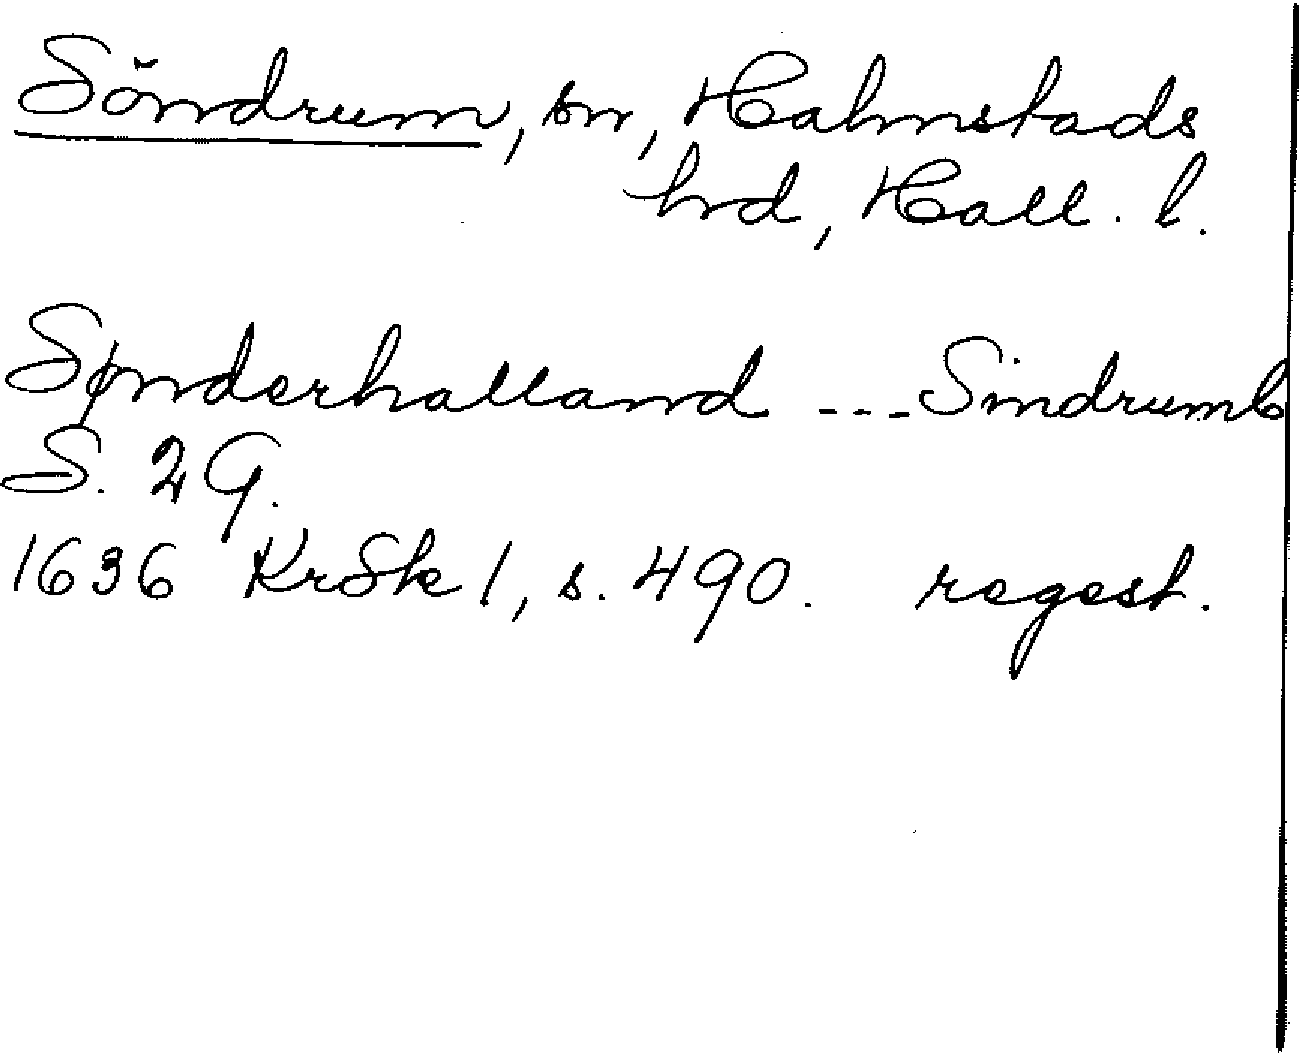 Söndrum, sn, Halmstads
hrd, Hall. l.
Sønderhalland --- Sindrumb
S. 2 G.
1636 KrSk 1, s. 490. regest.